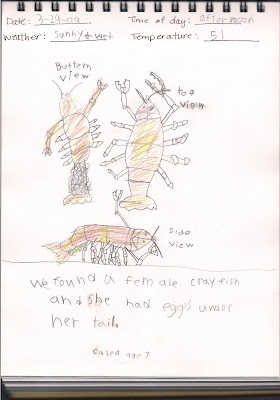 Date: 3-29-09 Time of day: afternoon
Weather: Sunny & wet Temperature: 51
Buttem view
top view
side view
We found a female crayfish
and she had eggs under
her tail.
Caled age 7